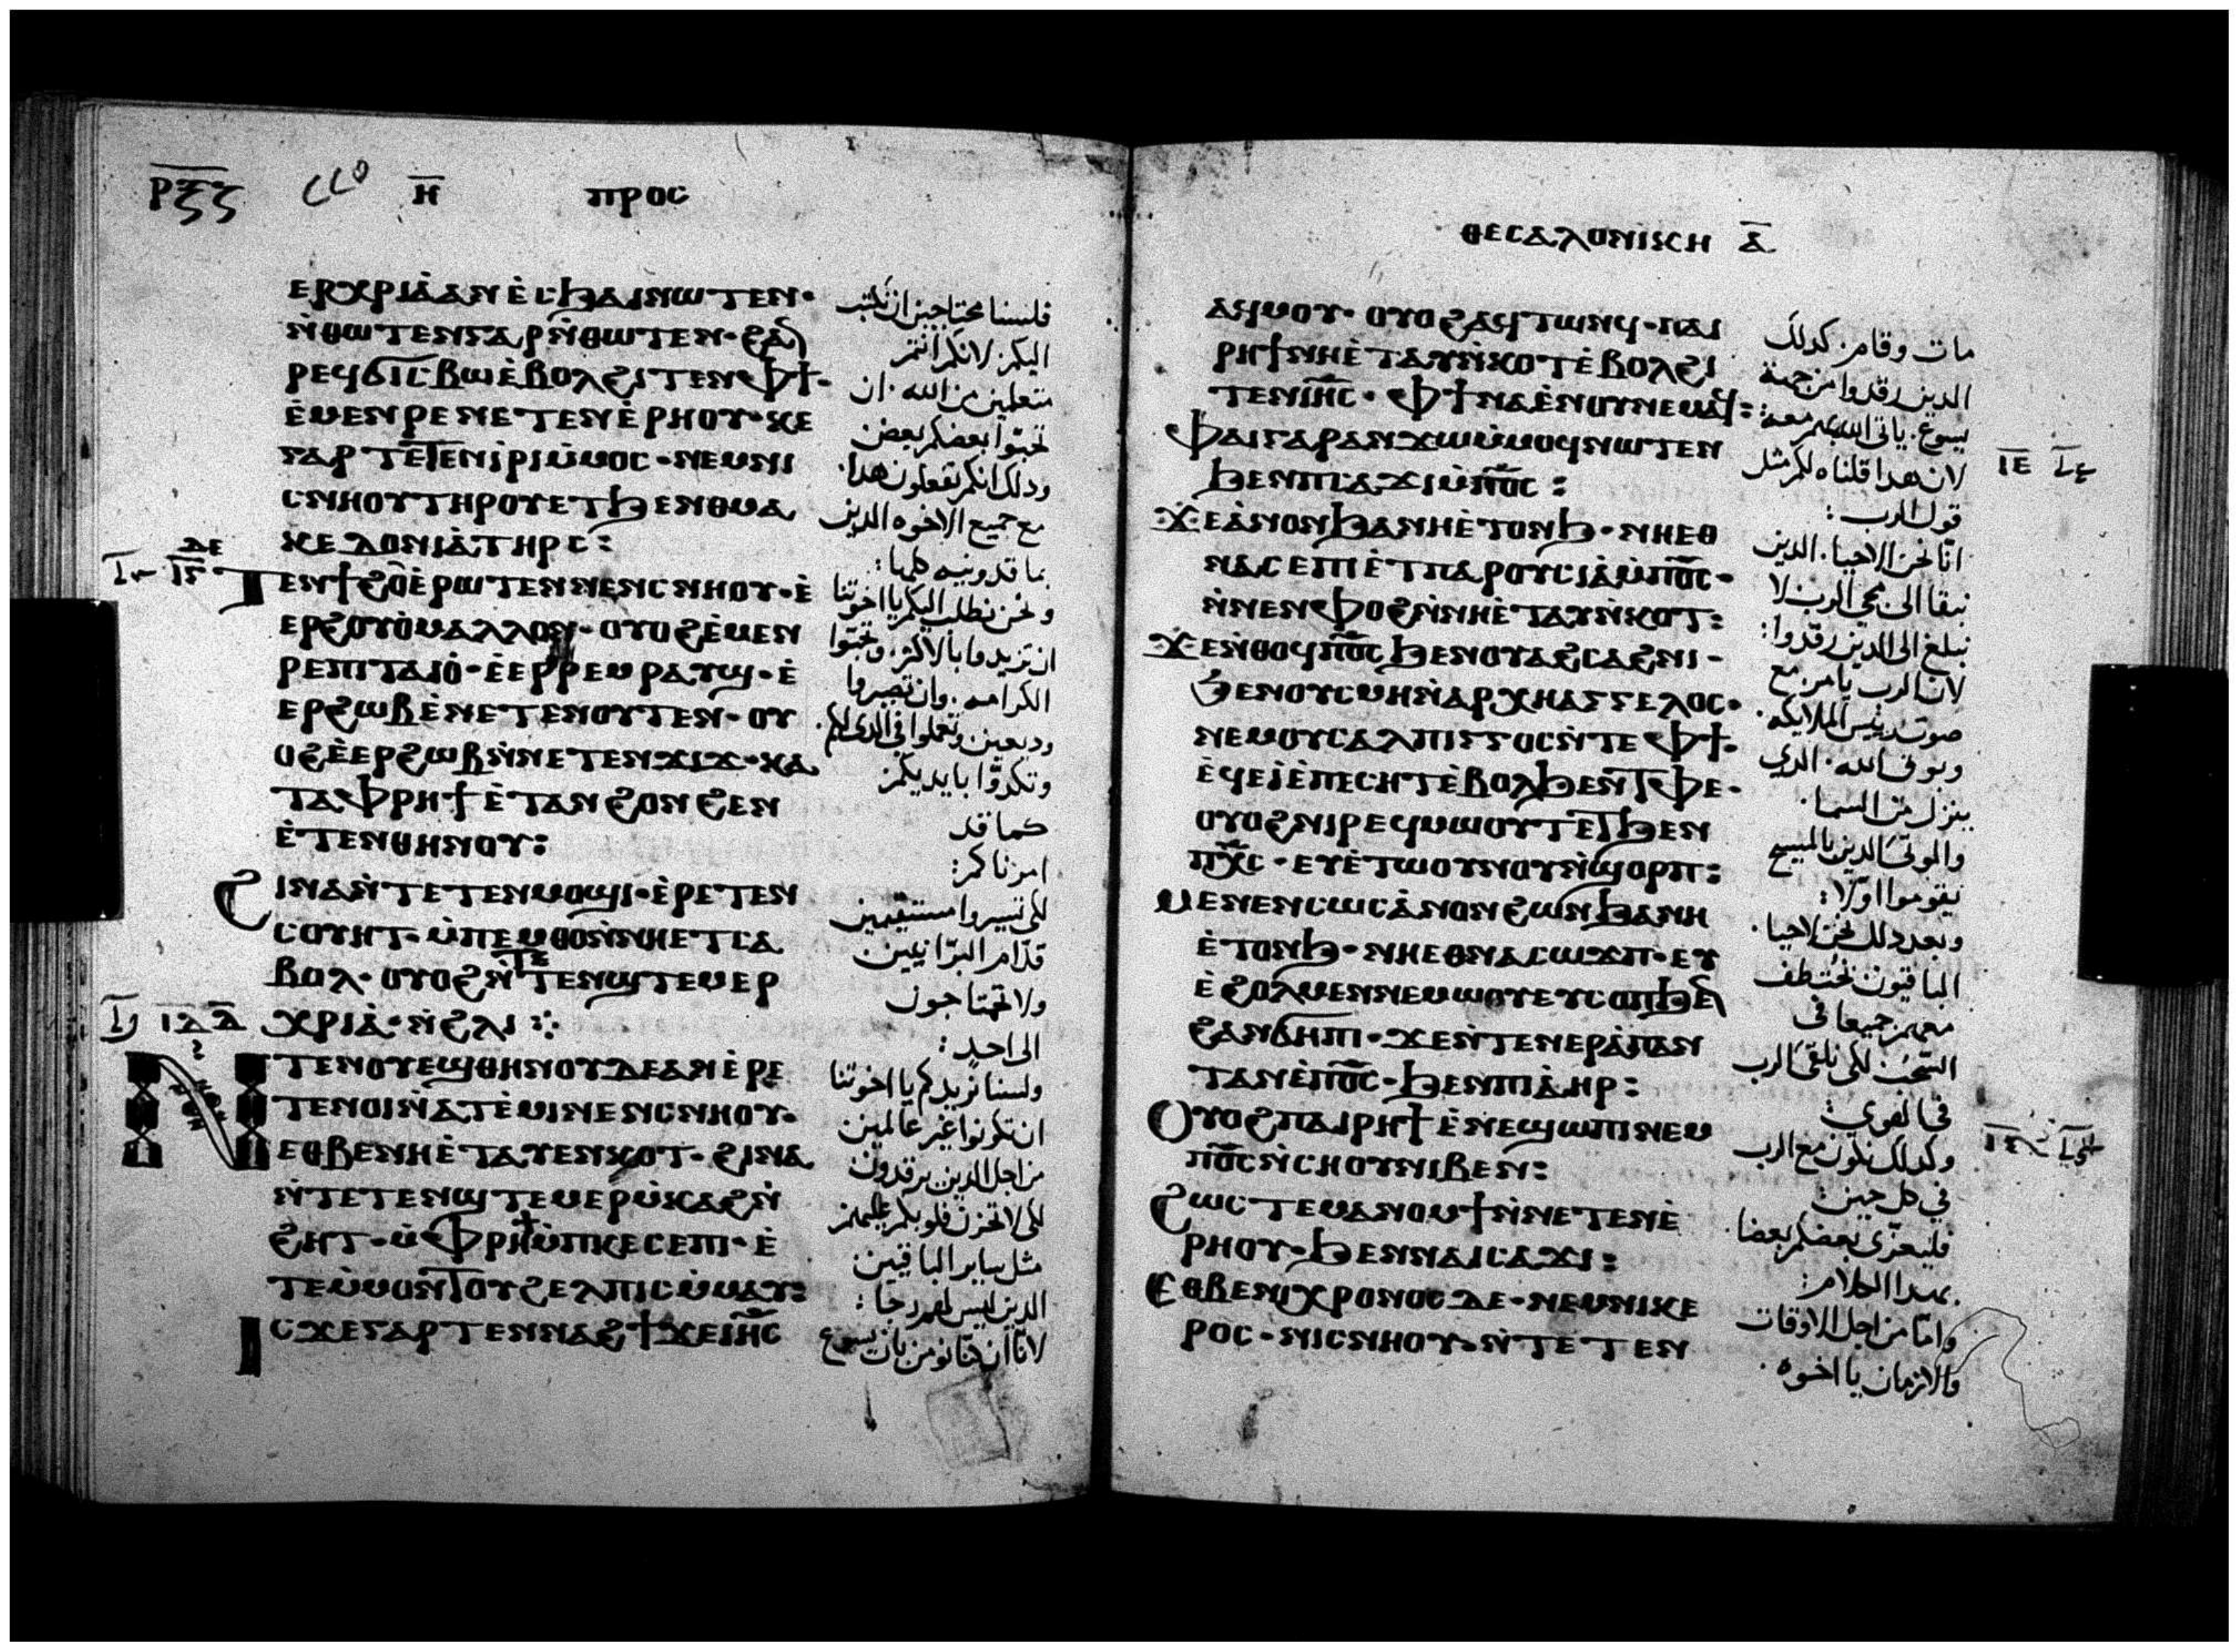 ⲣⲝⲍ ⲏ ⲡⲣⲟⲥ
ⲉⲣⲭⲣⲓⲁ̀ⲁⲛ ⲉ̀ⲥϧⲁⲓⲛⲱⲧⲉⲛ·
ⲛ̀ⲑⲱⲧⲉⲛⲅⲁⲣⲛ̀ⲑⲱⲧⲉⲛ·ϩⲁⲛ
ⲣⲉϥϭⲓⲥⲃⲱⲉ̀ⲃⲟⲗϩⲓⲧⲉⲛⲫϯ·
ⲉ̀ⲙⲉⲛⲣⲉⲛⲉⲧⲉⲛⲉ̀ⲣⲏⲟⲩ·ⲕⲉ
ⲅⲁⲣ ⲧⲉⲧⲉⲛⲓ̀ⲣⲓⲙ̀ⲙⲟⲥ·ⲛⲉⲙⲛⲓ
ⲥⲛⲏⲟⲩⲧⲏⲣⲟⲩⲉⲧϧⲉⲛⲑⲙⲁ
ⲕⲉⲇⲟⲛⲓⲁ̀ⲧⲏⲣⲥ:
ⲇⲉ
ⲧⲉⲛϯϩⲟⲉ̀ⲣⲱⲧⲉⲛⲛⲉⲛⲥⲛⲏⲟⲩ·ⲉ̀
ⲉⲣϩⲟⲩⲟ̀ⲙⲁⲗⲗⲟⲛ·ⲟⲩⲟϩⲉ̀ⲙⲉⲛ
ⲣⲉⲡⲓⲧⲁⲓⲟ̀·ⲉ̀ⲉⲣⲣⲉⲙⲣⲁⲩϣ·ⲉ̀
ⲉⲣϩⲱⲃⲉ̀ⲛⲉⲧⲉⲛⲟⲩⲧⲉⲛ·ⲟⲩ
ⲟϩⲉ̀ⲉⲣϩⲱⲃⲛ̀ⲛⲉⲧⲉⲛϫⲓϫ·ⲕⲁ
ⲧⲁⲫⲣⲏϯⲉ̀ⲧⲁⲛϩⲟⲛϩⲉⲛ
ⲉ̀ⲧⲉⲛⲑⲏⲛⲟⲩ:
ϩⲓⲛⲁⲛ̀ⲧⲉⲧⲉⲛⲙⲟϣⲓ·ⲉ̀ⲣⲉⲧⲉⲛ
ⲥⲟⲩⲏⲧ·ⲙ̀ⲡⲉⲙⲑⲟⲛ̀ⲛⲏⲉⲧⲥⲁ
ⲃⲟⲗ·ⲟⲩⲟϩⲛ̀ⲧⲉⲧⲉⲛϣⲧⲉⲙⲉⲣ
ⲓⲇ ⲇ̅ ⲭⲣⲓⲁ̀·ⲛ̀ϩⲗⲓ⁘
ⲛⲧⲉⲛⲟⲩⲉϣⲑⲏⲛⲟⲩⲇⲉⲁⲛⲉ̀ⲣⲉ
ⲧⲉⲛⲟⲓⲛ̀ⲁⲧⲉ̀ⲙⲓⲛⲉⲛⲥⲛⲏⲟⲩ·
ⲉⲑⲃⲉⲛⲏⲉ̀ⲧⲁⲩⲉⲛⲕⲟⲧ·ϩⲓⲛⲁ
ⲛ̀ⲧⲉⲧⲉⲛϣⲧⲉⲙⲉⲣⲙ̀ⲕⲁϩⲛ̀
ϩⲏⲧ·ⲙ̀ⲫⲣⲏϯⲙ̀ⲡⲕⲉⲥⲉⲡⲓ·ⲉ̀
ⲧⲉⲙ̀ⲙⲟⲛⲧⲟⲩϩⲉⲗⲡⲓⲥⲙ̀ⲙⲁⲩ:
ⲓⲥϫⲉⲅⲁⲣⲧⲉⲛⲛⲁϩϯϫⲉⲓⲏ̅ⲥ
فلسنا محتاجين ان نكتب
اليكم لانكم انتم
متعلمين من الله. ان
تحبوا بعضكم بعض
ودلك انكم تفعلون هدا.
مع جميع الاخوه الدين
بماقدونيه كلها:
ونحن نطلب اليكم يا اخوتنا
ان تزيدوا بالاكثر. وتحبوا
الكرامه. وان تصيروا
وديعين وتعملوا في الدى لكم.
وتكدوا بايديكم
كما قد
امرناكم:
لكى تسيروا مستقيمين
قدام البرانيين
ولا تحتاجون
الى احد:
ولسنا نريدكم يا اخوتنا
ان تكونوا غير عالمين
من اجل الدين يرقدون
لكى لا تحزن قلوبكم عليهم
مثل ساير الباقيين
الدين ليس لهم رجا:
لانا ان كنا نومن بان يسوع
ⲑⲉⲥⲁⲗⲟⲛⲓⲕⲏ ⲁ̅
ⲁϥⲙⲟⲩ·ⲟⲩⲟϩⲁϥⲧⲱⲛϥ·ⲡⲁⲓ
ⲣⲏϯⲛⲏⲉ̀ⲧⲁⲩⲛ̀ⲕⲟⲧⲉ̀ⲃⲟⲗϩⲓ
ⲧⲉⲛⲓⲏ̅ⲥ·ⲫϯⲛⲁⲉ̀ⲛⲟⲩⲛⲉⲙⲁϥ:
ⲫⲁⲓⲅⲁⲣⲁⲛϫⲱⲙ̀ⲙⲟϥⲛⲱⲧⲉⲛ
ϧⲉⲛⲡⲥⲁϫⲓⲙ̀ⲡⲟ̅ⲥ: ⲓⲉ
ϫⲉⲁ̀ⲛⲟⲛϧⲁⲛⲏⲉ̀ⲧⲟⲛϧ·ⲛⲏⲉⲑ
ⲛⲁⲥⲉⲡⲓⲉ̀ⲧⲡⲁⲣⲟⲩⲥⲓⲁ̀ⲙ̀ⲡⲟ̅ⲥ·
ⲛ̀ⲛⲉⲛⲫⲟϩⲛ̀ⲛⲏⲉ̀ⲧⲁⲩⲛ̀ⲕⲟⲧ:
ϫⲉⲛ̀ⲑⲟϥⲡⲟ̅ⲥ ϧⲉⲛⲟⲩⲁϩⲥⲁϩⲛⲓ·
ϧⲉⲛⲟⲩⲥⲙⲏⲛ̀ⲁⲣⲭⲏⲁⲅⲅⲉⲗⲟⲥ·
ⲛⲉⲙⲟⲩⲥⲁⲗⲡⲓⲅⲅⲟⲥⲛ̀ⲧⲉⲫϯ·
ⲉ̀ϥⲉⲓ̀ⲉ̀ⲡⲉⲥⲏⲧⲉ̀ⲃⲟⲗϧⲉⲛⲧⲫⲉ·
ⲟⲩⲟϩⲛⲓⲣⲉϥⲙⲱⲟⲩⲧⲉⲧϧⲉⲛ
ⲡⲭ̅ⲥ·ⲉⲩⲉ̀ⲧⲱⲟⲩⲛⲟⲩⲛ̀ϣⲟⲣⲡ:
ⲙⲉⲛⲉⲛⲥⲱⲥⲁ̀ⲛⲟⲛϩⲱⲛϧⲁⲛⲏ
ⲉ̀ⲧⲟⲛϧ·ⲛⲏⲉⲑⲛⲁⲥⲱϫⲡ·ⲉⲩ
ⲉ̀ϩⲟⲗⲙⲉⲛⲛⲉⲙⲱⲟⲩⲉⲩⲥⲟⲡϧⲉⲛ
ϩⲁⲛϭⲏⲡⲓ·ϫⲉⲛ̀ⲧⲉⲛⲉⲣⲁ̀ⲡⲁⲛ
ⲧⲁⲛⲉ̀ⲡⲟ̅ⲥ·ϧⲉⲛⲡⲓⲁ̀ⲏⲣ:
ⲟⲩⲟϩⲡⲁⲓⲣⲏϯⲉ̀ⲛⲉϣⲱⲡⲓⲛⲉⲙ
ⲡⲟ̅ⲥⲛ̀ⲥⲏⲟⲩⲛⲓⲃⲉⲛ:
ϩⲱⲥⲧⲉⲙⲁⲛⲟⲙϯⲛ̀ⲛⲉⲧⲉⲛⲉ̀
ⲣⲏⲟⲩ·ϧⲉⲛⲛⲁⲓⲥⲁϫⲓ:
ⲉⲑⲃⲉⲛⲓⲭⲣⲟⲛⲟⲥⲇⲉ·ⲛⲉⲙⲛⲓⲕⲉ
ⲣⲟⲥ·ⲛⲓⲥⲛⲏⲟⲩ·ⲛ̀ⲧⲉⲧⲉⲛ
مات وقام. كدلك
الدين رقدوا من جهة
يسوع. ياتى الله بهم معه:
لان هدا قلناه لكم مثل
قول الرب:
انا نحن الاحيا. الدين
نبقا الى مجى الرب لا
نبلغ الى الدين رقدوا:
لان الرب يامر مع
صوت رييس الملايكه.
وبوق الله. الدي
ينزل من السما.
والموتى الدين بالمسيح
يقوموا اولا:
وبعد دلك نحن الاحيا.
الباقيون نختطف
معهم جميعا في
السحب لكى نلقى الرب
في الهوى:
وكدلك نكون مع الرب
في كل حين:
فليعزى بعضكم بعضا.
بهدا الكلام:
واما من اجل الاوقات
والازمان يا اخوه.